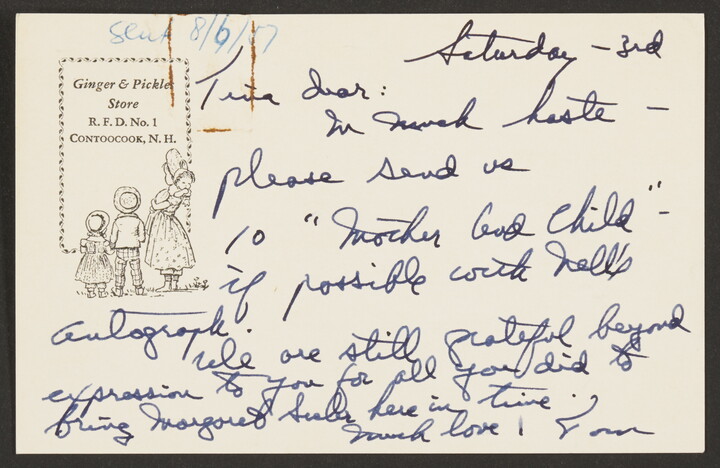 sent 8/6/57
Ginger & Pickles
Store
R. F. D. No. 1
CONTOOCOOK, N. H.
Saturday - 3rd
Tina dear:
In much haste -
please send us
10 "Mother and Child" -
if possible with Nell's
autograph.
We are still grateful beyond
expression to you for all you did to
bring Margaret here in time.
Much love! Tom